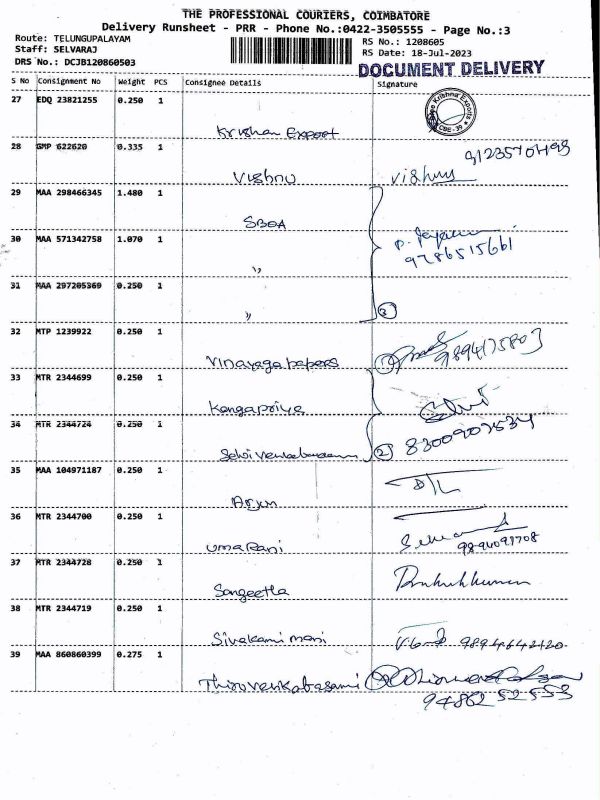 THE PROFESSIONAL COURIERS, COIMBATORE
Delivery Runsheet - PRR - Phone No.:0422-3505555 - Page No.:3
Route: TELUNGUPALAYAM
RS No.: 1208605
Staff: SELVARAJ
RS Date: 18-Jul-2023
DRS No.: DCJB120860503
DOCUMENT DELIVERY
S No Consignment No Weight PCS Consignee Details Signature
27 EDQ 23821255 0.250 1
Krishna Exports
CBE-39
Krishan Export
28 GMP 622620 0.335 1
Vishnu Vishnu
29 MAA 298466345 1.480 1
SBOA
30 MAA 571342758 1.070 1
9786515661
"
31 MAA 297205369 0.250 1
" 3
32 MTP 1239922 0.250 1
Vinayaga papers 9894175803
33 MTR 2344699 0.250 1
Kangapriya
34 MTR 2344724 0.250 1
8300907534
2
35 MAA 104971187 0.250 1
Arjun
36 MTR 2344700 0.250 1
UmaRani
9894091708
37 MTR 2344728 0.250 1
Sangeetha
38 MTR 2344719 0.250 1
Sivakami mani 9894642120
39 MAA 860860399 0.275 1
Thiruvenkatasami
9486252553